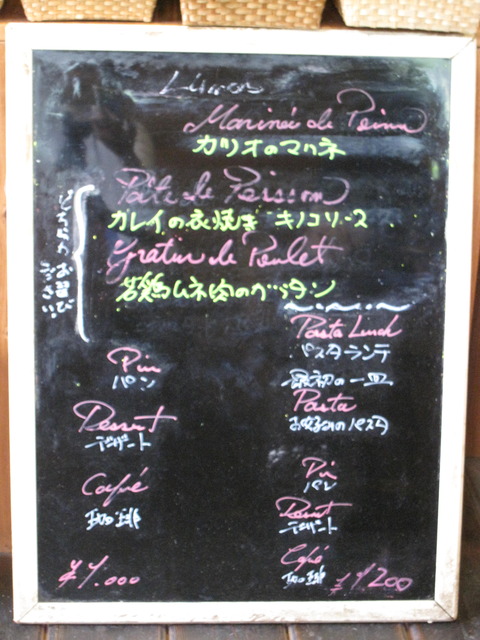 Marinée de
カツオのマリネ
Pâte de Poisson
カレイの衣焼き キノコソース
Gratin de Poulet
若鶏ムネ肉のグラタン
どちらかお選び
下さい
Pin
パン
Dessert
デザート
Café
珈琲
¥1.000
Pasta Lunch
パスタランチ
最初の一皿
Pasta
お好みのパスタ
Pin
パン
Dessert
デザート
Café
珈琲
¥1200